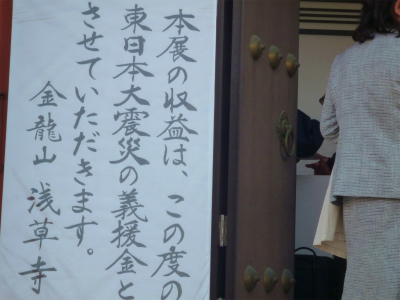 本展の収益は、この度の
東日本大震災の義援金と
させていただきます。
金龍山 浅草寺